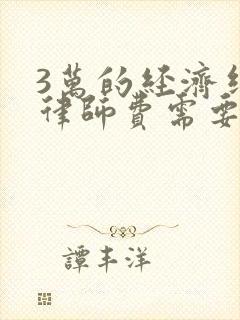 3萬的經濟
律師費需要
譚丰洋